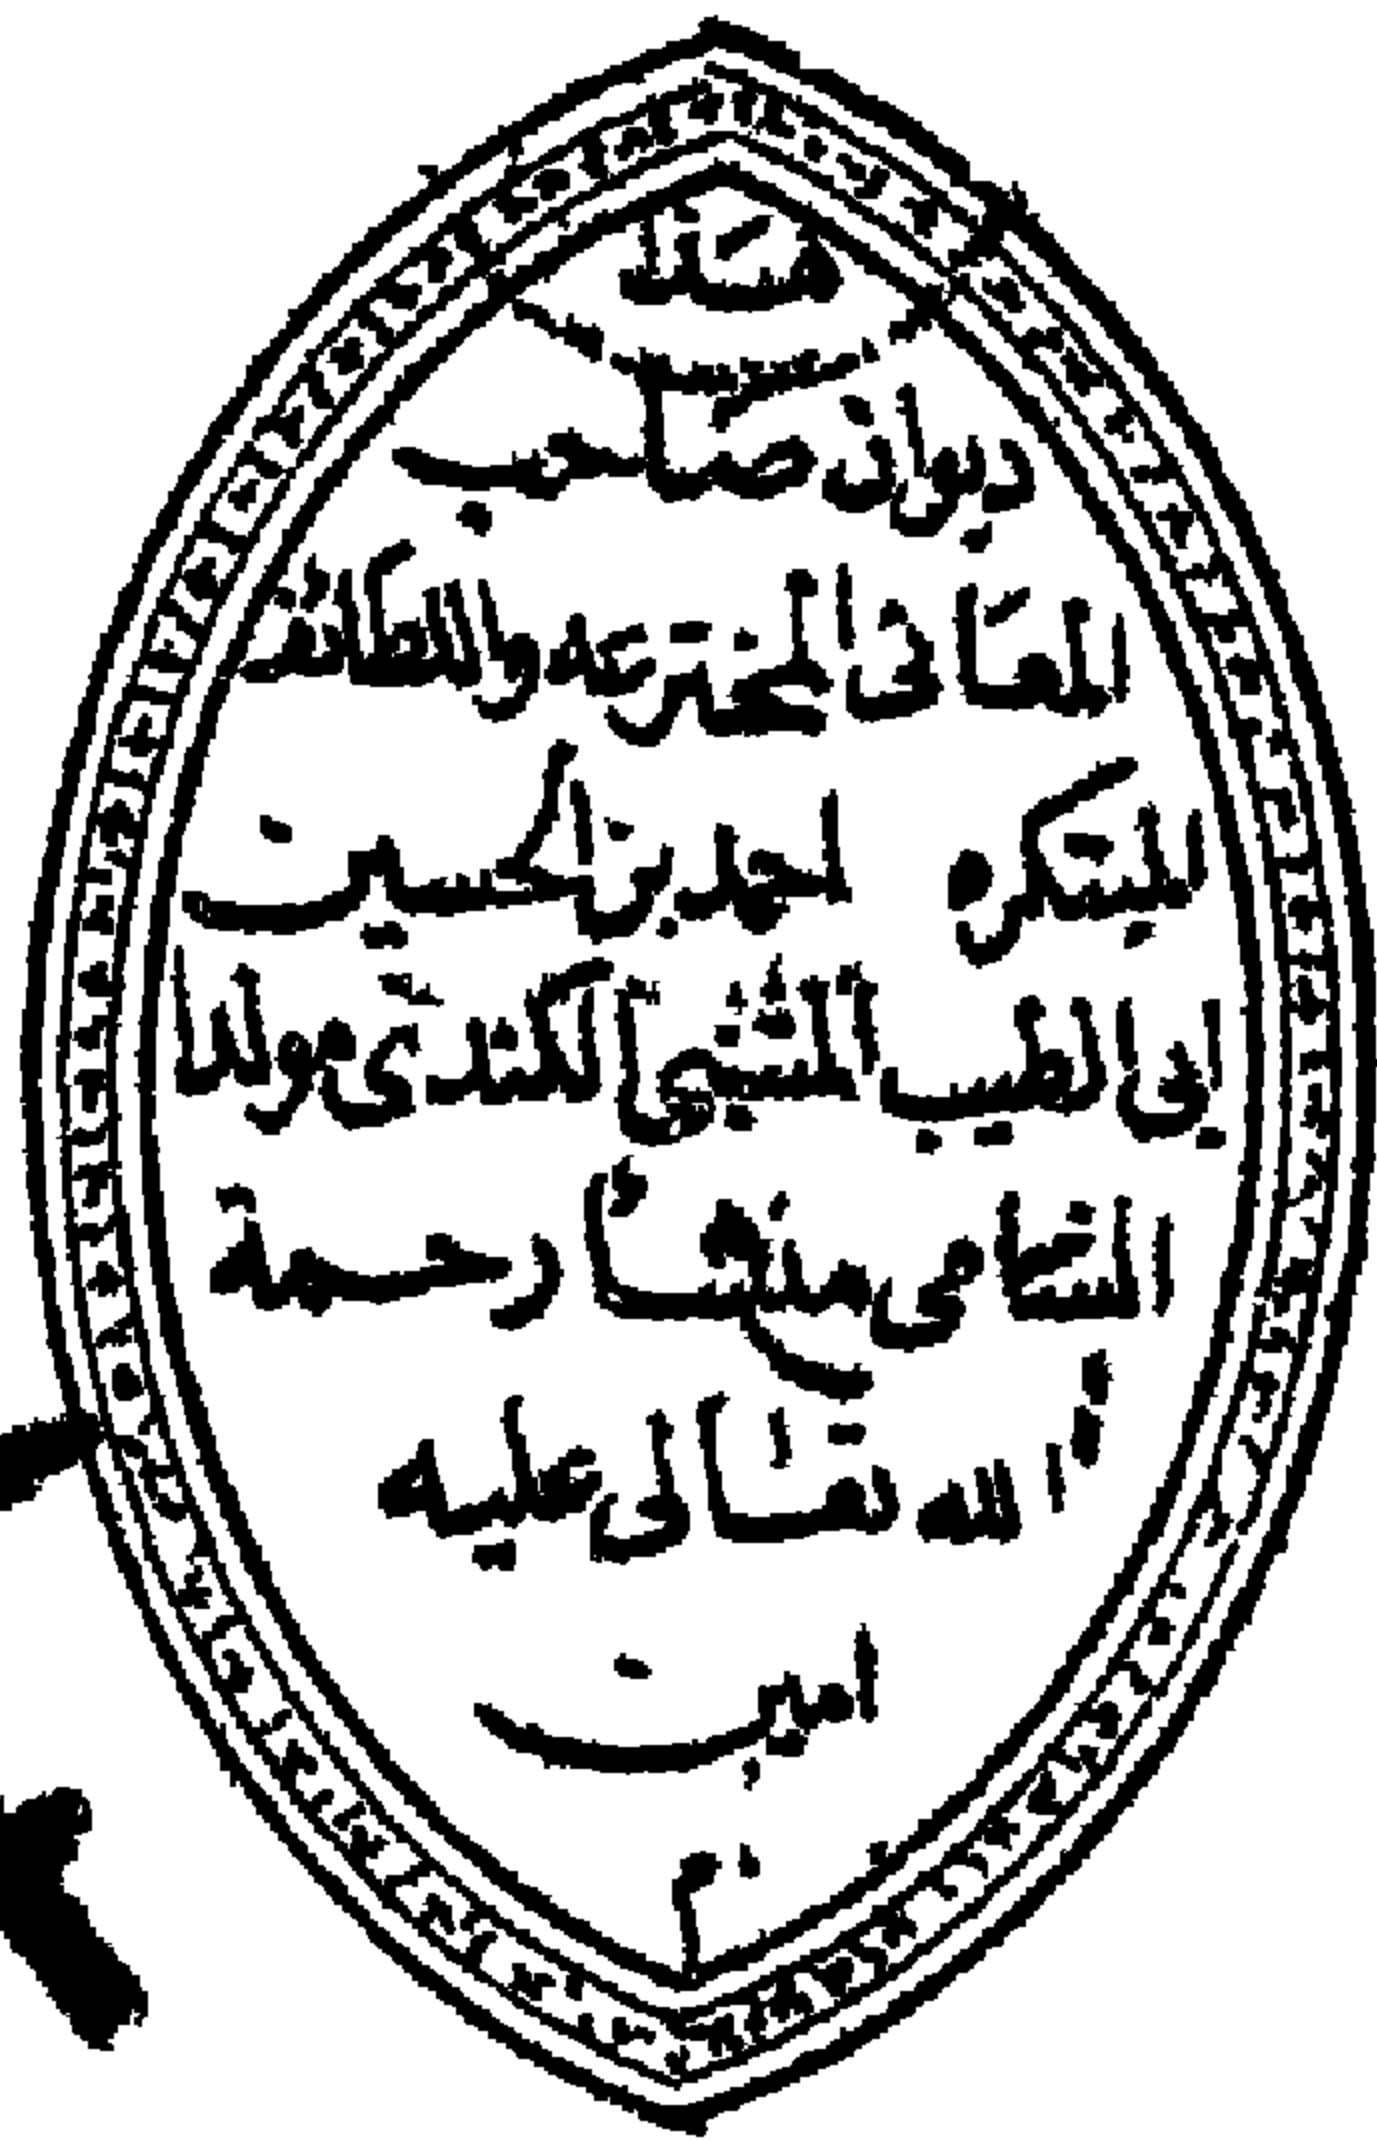 هذا
ديوان صاحب
المعانى المخترعه واللطائف
المبتكره احمد بن الحسين
ابى الطيب المتنبى الكندى مولدا
رحمة
الله تعالى عليه
امين
م